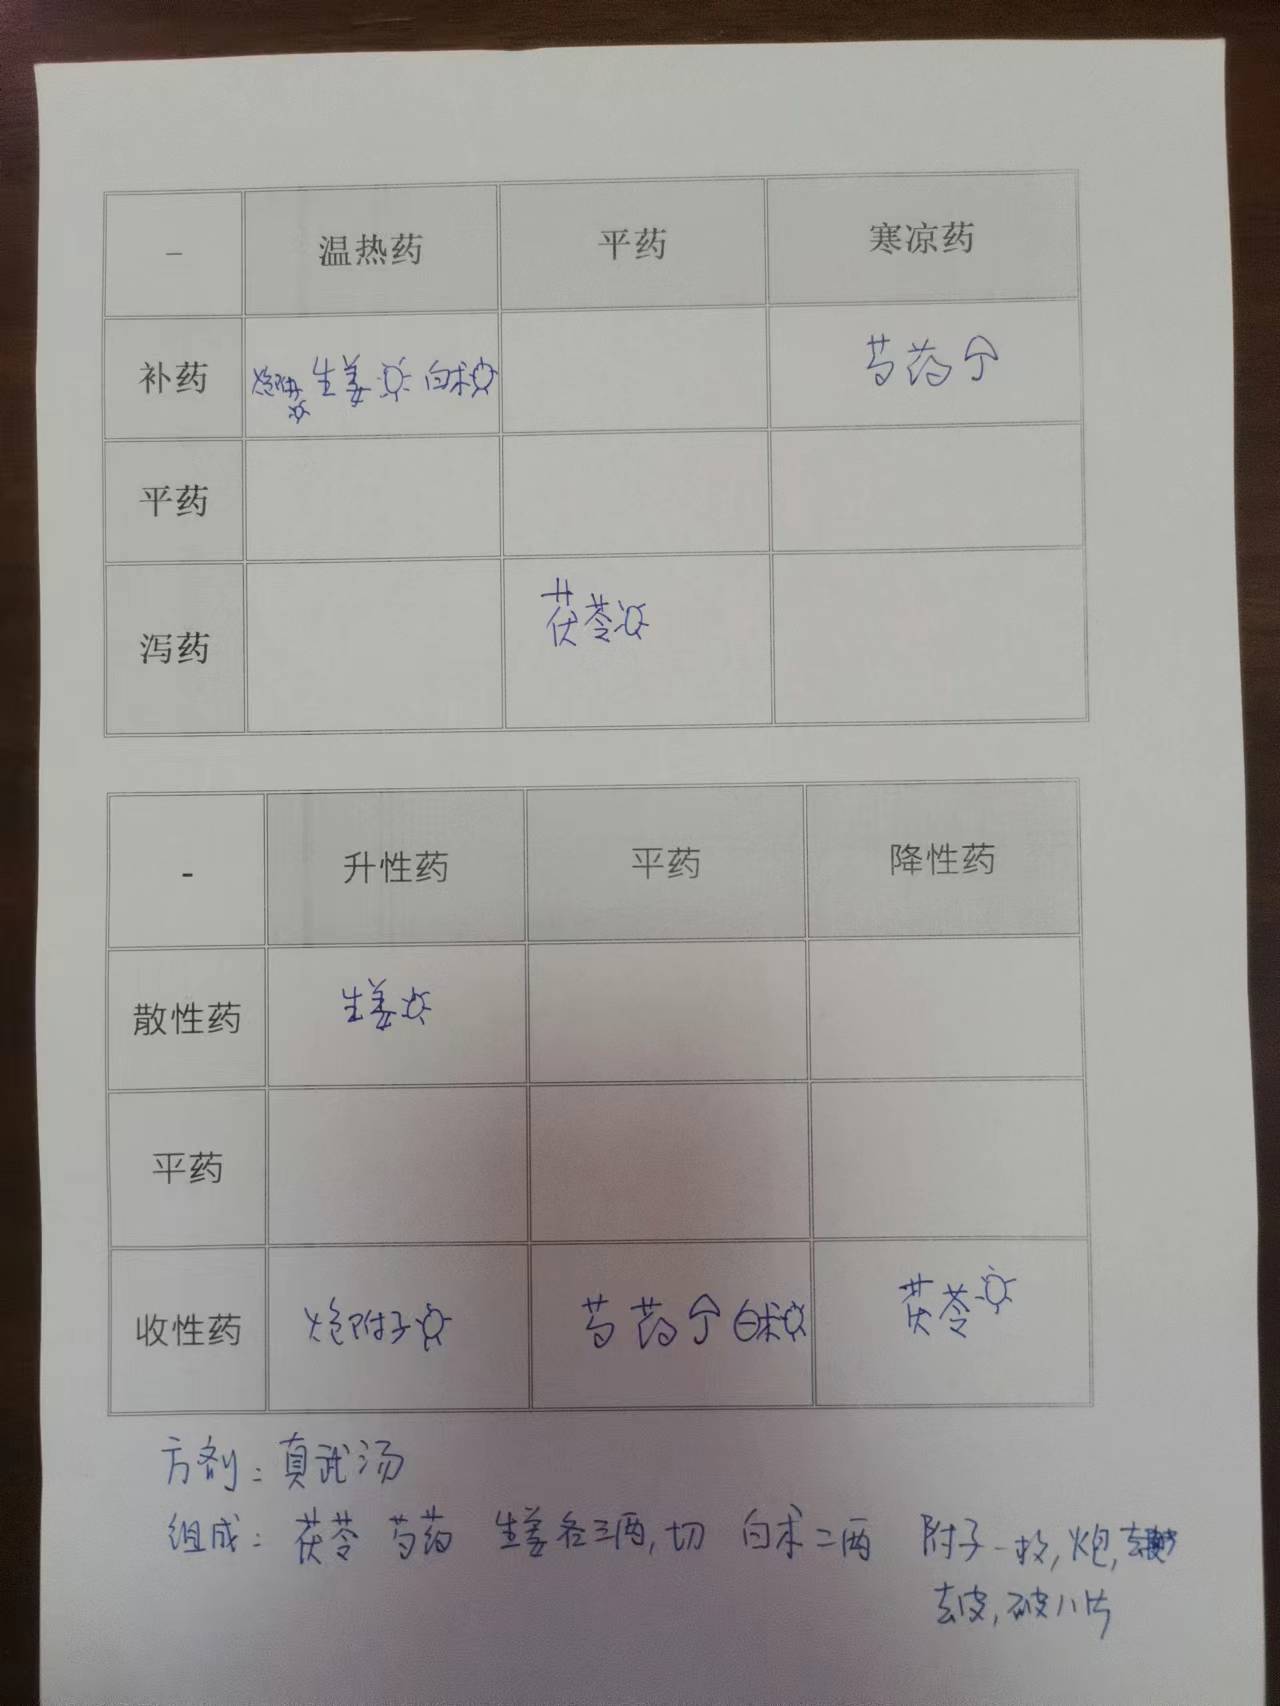 – 温热药 平药 寒凉药
补药 炮附 生姜 白术 芍药
平药
泻药 茯苓
- 升性药 平药 降性药
散性药 生姜
平药
收性药 炮附子 芍药 白术 茯苓
方剂：真武汤
组成：茯苓 芍药 生姜各三两,切 白术二两 附子一枚,炮,去
去皮,破八片